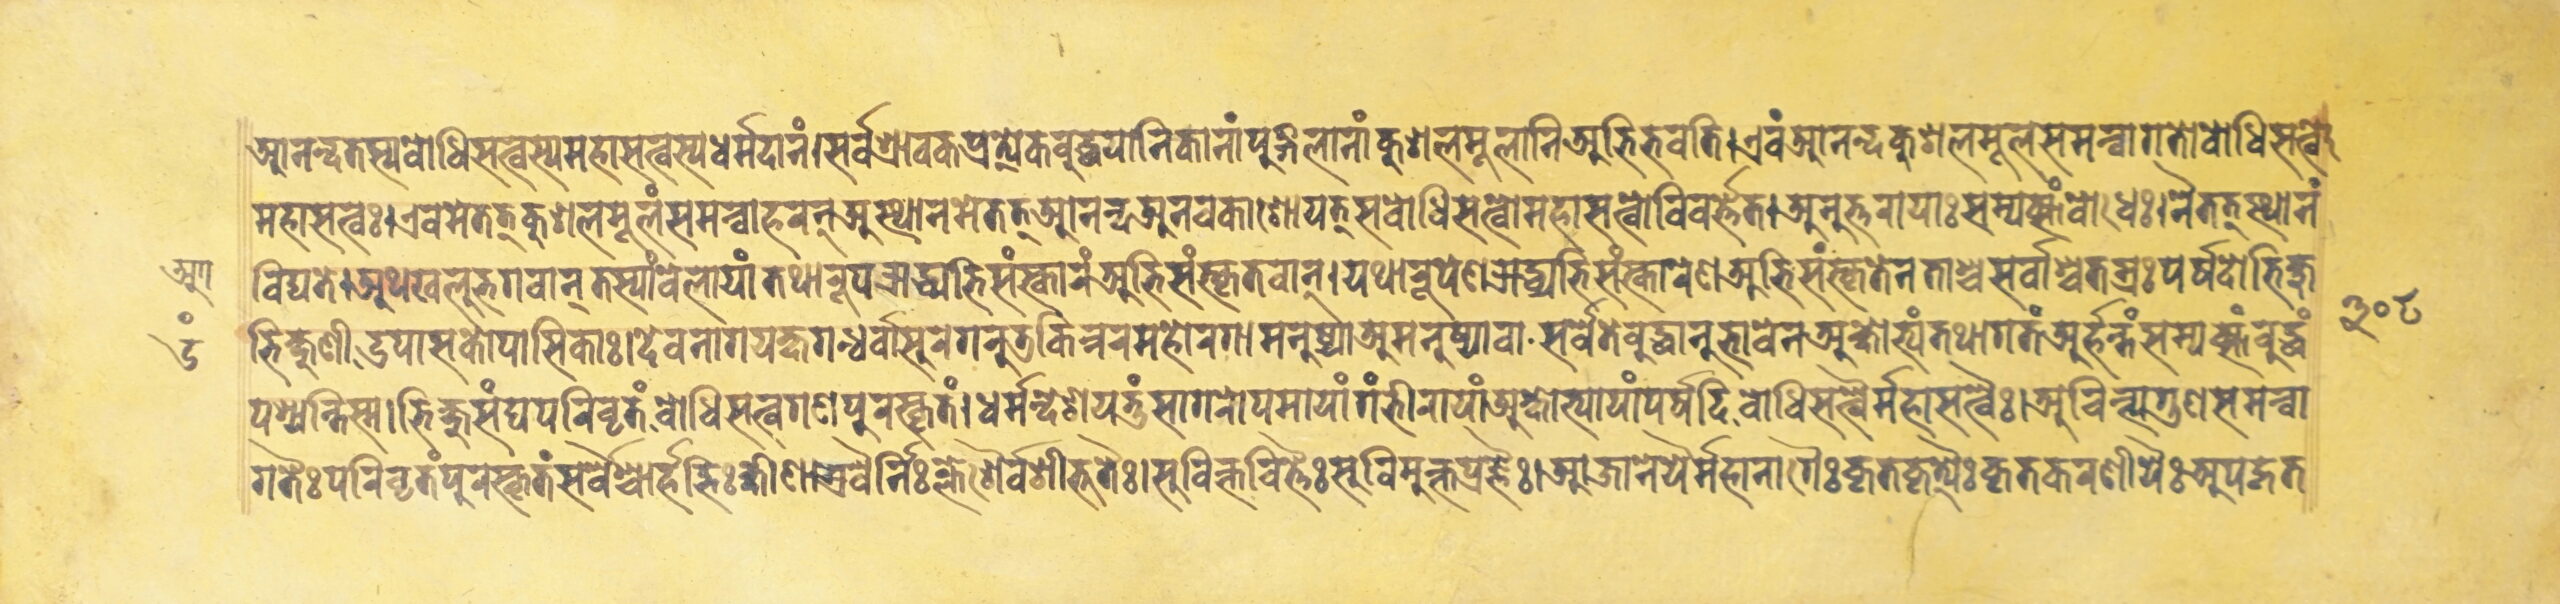 आनन्दतस्यबोधिसत्त्वस्यमहासत्त्वस्यधर्मदानं।सर्वश्रावकप्रत्येकबुद्धयानिकानांपुद्गलानांकुशलमूलानिअभिभवति।एवंआनन्दकुशलमूलसमन्वागतोबोधिसत्त्वो
महासत्त्वः।एवमेतत्कुशलमूलंसमन्वाहरन्अस्थानमेतत्आनन्दअनवकाशोयत्सबोधिसत्त्वोमहासत्त्वोविवर्त्तेत।अनुत्तरायाःसम्यक्संबोधेः।नैतत्स्थानं
विद्यते।अथखलुभगवान्तस्यांवेलायांतथारूपऋद्ध्यभिसंस्कारंअभिसंस्कृतवान्।यथारूपेणऋद्ध्यभिसंस्कारेणअभिसंस्कृतेनताश्चसर्वाश्चेतस्रःपर्षदोभिक्षु
भिक्षुणीउपासकोपासिकाः।देवनागयक्षगन्धर्वासुरगरुडकिन्नरमहोरगामनुष्याअमनुष्यावा॰सर्वेतेबुद्धानुभावेनअक्षोभ्यंतथागतंअर्हन्तंसम्यक्संबुद्धं
पश्यन्तिस्म।भिक्षुसंघपरिवृतंबोधिसत्त्वगणपुरस्कृतं।धर्मन्देशयतुंसागरोपमायांगंभीरायांअक्षोभ्यायांपर्षदिबोधिसत्त्वैर्महासत्त्वैः।अचिन्त्यगुणसमन्वा
गतैःपरिवृतंपुरस्कृतंसर्वैश्चार्हद्भिःक्षीणास्रवैर्निःक्लेशैर्वशीभूतैः।सुविक्तचित्तैःसुविमुक्तप्रज्ञैः।आजानेयैर्महानागैःकृतकृत्यैःकृतकरणीयैःअपहृत
३०८